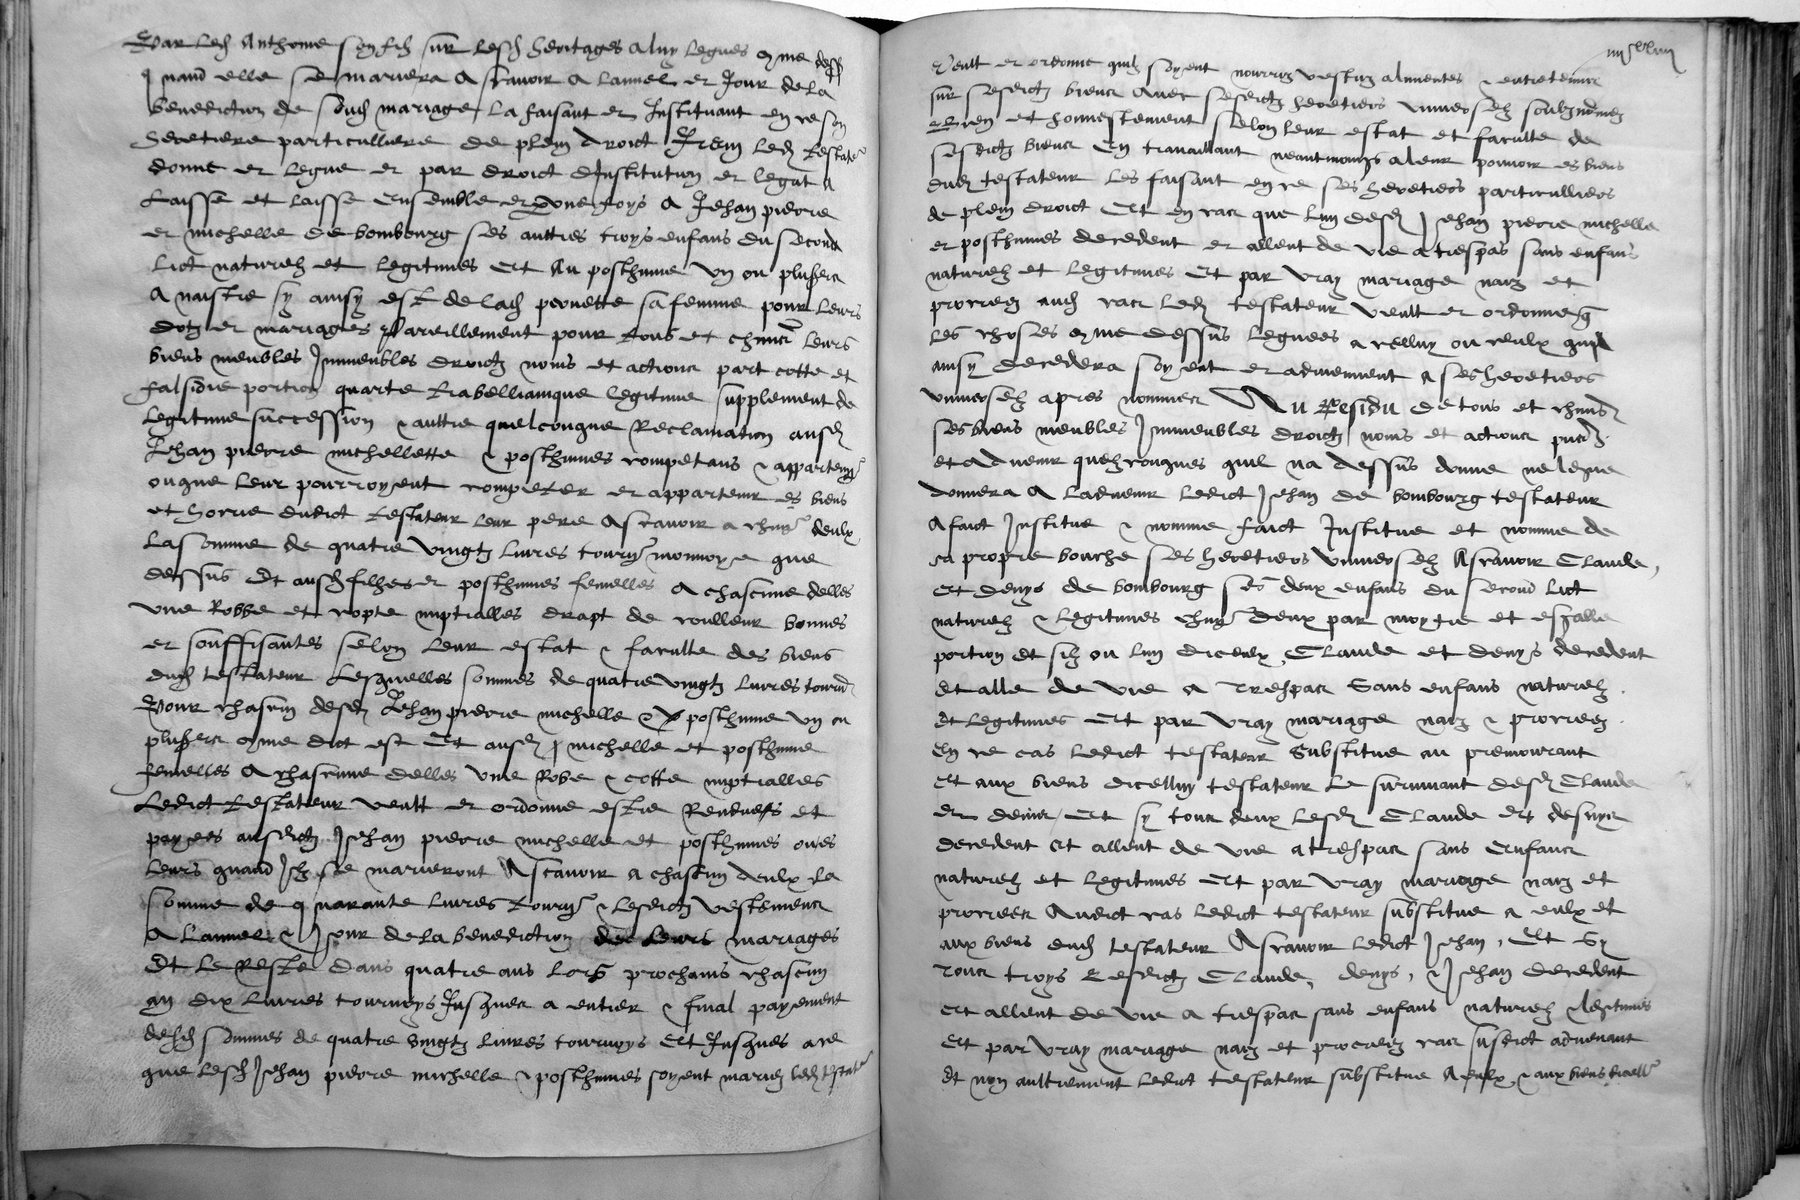 Par led Anthoine son filz sur lesd heritages a luy legues come dess
quand elle se mariera Ascavoir a lannel et Jour de la
benediction de soud mariage la faisant et Instituant en ce son
heretiere particulliere de plein droict Item led testatr
donne et legue et par droict dInstitution et legat a
laisse et laisse ensemble et donne foys A Jehan pierre
et michelle de bombourg ses aultres troys enfans du second
lict naturelz et legitimes Et Au posthume vng ou plusrs
A naistre sy ainsy est de lad pernette sa femme pour leurs
dotz et mariages Pareillement pour tous et chuns leurs
biens meubles Immeubles droictz noms et actions part cotte et
falsidie portion quarte trabellianique legitime supplement de
legitime succession & aultre quelconque Reclamation ausd
Jehan pierre michellette & posthumes competans & appartent
ou que leur pourroyent competer et appartenir es biens
et horrie dudict testateur leur pere Ascavoir a chun deulx
la somme de quatre vingtz livres tournr monnoye que
dessus Et ausd filhes et posthumes femelles A chascune delles
une Robbe et cotte nuptialles drapt de coulleur bonnes
et souffisantes selon leur estat & faculte des biens
dud testateur Lesquelles sommes de quatre vingtz livres tournr
Pour chascun desd Jehan pierre michelle & posthume vng ou
plusrs come dict est Et ausd michelle et posthume
femelles A chascune delles une Robe & cotte nuptialles
Ledict testateur veult et ordonne estre Rendues et
payees ausdictz Jehan pierre michelle et posthumes
leurs quand Ilz se marieront Ascavoir a chascun deulx la
somme de quarante livres tournr & lesdictz vestemens
A lannel & Jour de la benediction de leurs mariages
Et le Reste dans quatre ans lors prochains chascun
an dix livres tournoys Jusques a entier & final payement
desd sommes de quatre vingtz livres tournoys Et Jusques a ce
que lesd Jehan pierre michelle & posthumes soyent mariez led testateur
Veult et ordonne quilz soyent nourriz vestuz alimentes & entretenuz
sur sesdictz biens Avec sesdictz heretiers universelz soubznomez
Bien et honnestement selon leur estat et faculte de
sesdictz biens En travaillant neantmoings a leur pouvoir es biens
dud testateur les faisant en ce ses heretiers particulliers
de plein droict Et en cas que lun desd Jehan pierre michelle
et posthumes decedent et aillent de vie a trespas sans enfans
naturelz et legitimes Et par vray mariage naiz et
procreez aud cas led testateur veult et ordonne q
les choses come dessus leguees a celluy ou ceulx quil
ainsy decedera soyent et adviennent a ses heretiers
universelz apres nommes Au Residu de tous et chuns
ses biens meubles Immeubles droictz noms et actions pntz
et advenir quelzconques quil na dessus donne ne legue
donnera A ladvenir ledict Jehan de bombourg testateur
A faict Institue & nomme faict Institue et nomme de
sa propre bouche ses heretiers universelz Ascavoir Claude,
Et denys de bombourg ses deux enfans du second lict
naturelz & legitimes chun deux par moytie et esgalle
portion Et sil ou lun diceulx Claude et denys decedent
Et alle de vie a trespas Sans enfans naturelz
Et legitimes Et par vray mariage naiz & procreez
En ce cas ledict testateur Substitue au premourant
Et aux biens dicelluy testateur Le survivant desd Claude
et denis Et sy tous deux lesd Claude et denys
decedent Et aillent de vie a trespas sans enfans
naturelz et legitimes Et par vray mariage naiz et
procrees Audict cas ledict testateur substitue a eulx et
aux biens dud testateur Ascavoir ledict Jehan, Et Sy
Tous troys Lesdictz Claude, denys, & Jehan decedent
Et aillent de vie a trespas sans enfans naturelz & legitimes
Et par vray mariage naiz et procreez cas susdict advenant
Et non aultrement ledict testateur substitue A eulx & aux biens dicell